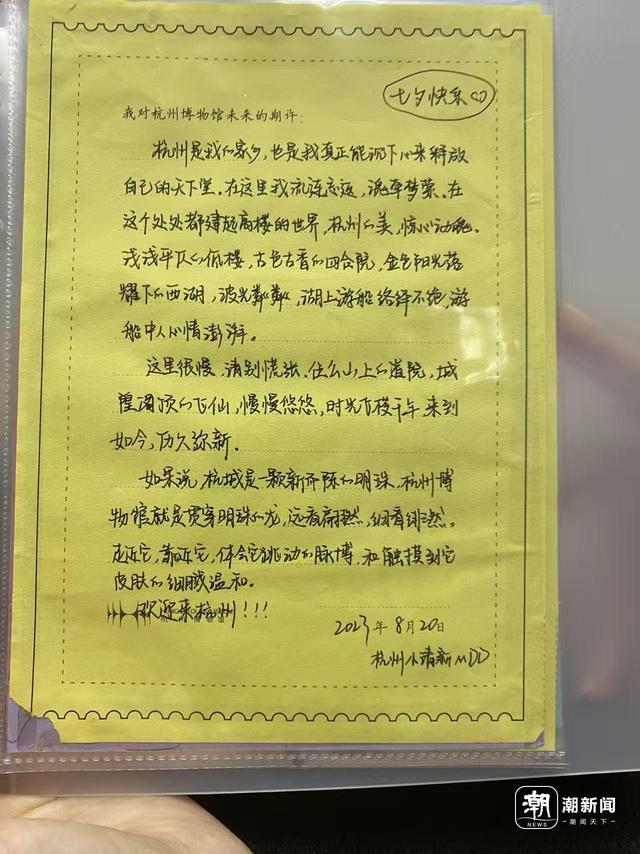 七夕快乐
我对杭州博物馆未来的期许：
杭州是我的家乡，也是我真正能沉下心来释放
自己的天下堂。在这里我流连忘返，魂牵梦萦。在
这个处处都建起高楼的世界，杭州的美，惊心动魄。
浅浅平仄的低楼，古色古香的四合院，金色阳光落
耀下的西湖，波光粼粼，湖上游船络绎不绝，游
船中人心情澎湃。
这里很慢，请别慌张。住么山上的道院，城
隍庙顶的飞仙，慢慢悠悠，时光飞梭千年，来到
如今，历久弥新。
如果说，杭城是一颗新而陈的明珠，杭州博
物馆就是贯穿明珠的龙，远看蔚然，细看绯然。
走近它，靠近它，体会它跳动的脉博，和触摸到它
皮肤的细腻温和。
欢迎来杭州！！！
2023年8月20日
杭州小清新
潮
NEWS
潮新闻
潮闻天下